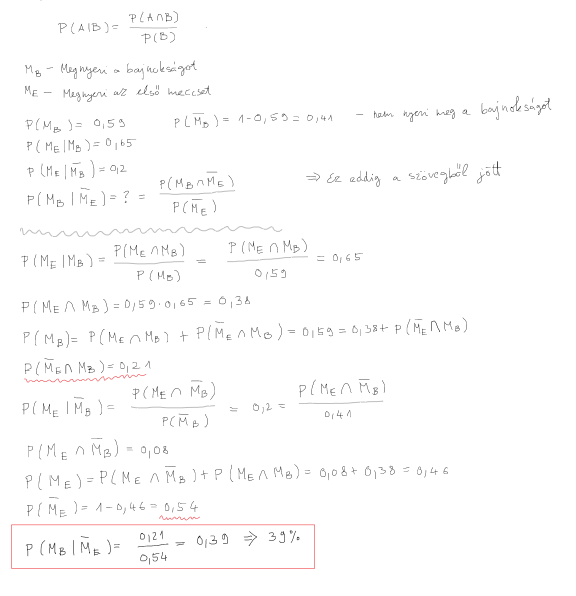 P(A|B) = P(A∩B) / P(B)
M_B – Megnyeri a bajnokságot
M_E – Megnyeri az első meccset
P(M_B) = 0,59   P(M̅_B) = 1-0,59 = 0,41   – nem nyeri meg a bajnokságot
P(M_E|M_B) = 0,65
P(M_E|M̅_B) = 0,2
P(M_B|M̅_E) = ? = P(M_B∩M̅_E) / P(M̅_E)   ⇒ Ez eddig a szövegből jött
P(M_E|M_B) = P(M_E∩M_B) / P(M_B) = P(M_E∩M_B) / 0,59 = 0,65
P(M_E∩M_B) = 0,59·0,65 = 0,38
P(M_B) = P(M_E∩M_B) + P(M̅_E∩M_B) = 0,59 = 0,38 + P(M̅_E∩M_B)
P(M̅_E∩M_B) = 0,21
P(M_E|M̅_B) = P(M_E∩M̅_B) / P(M̅_B) = 0,2 = P(M_E∩M̅_B) / 0,41
P(M_E∩M̅_B) = 0,08
P(M_E) = P(M_E∩M̅_B) + P(M_E∩M_B) = 0,08 + 0,38 = 0,46
P(M̅_E) = 1-0,46 = 0,54
P(M_B|M̅_E) = 0,21 / 0,54 = 0,39 ⇒ 39%